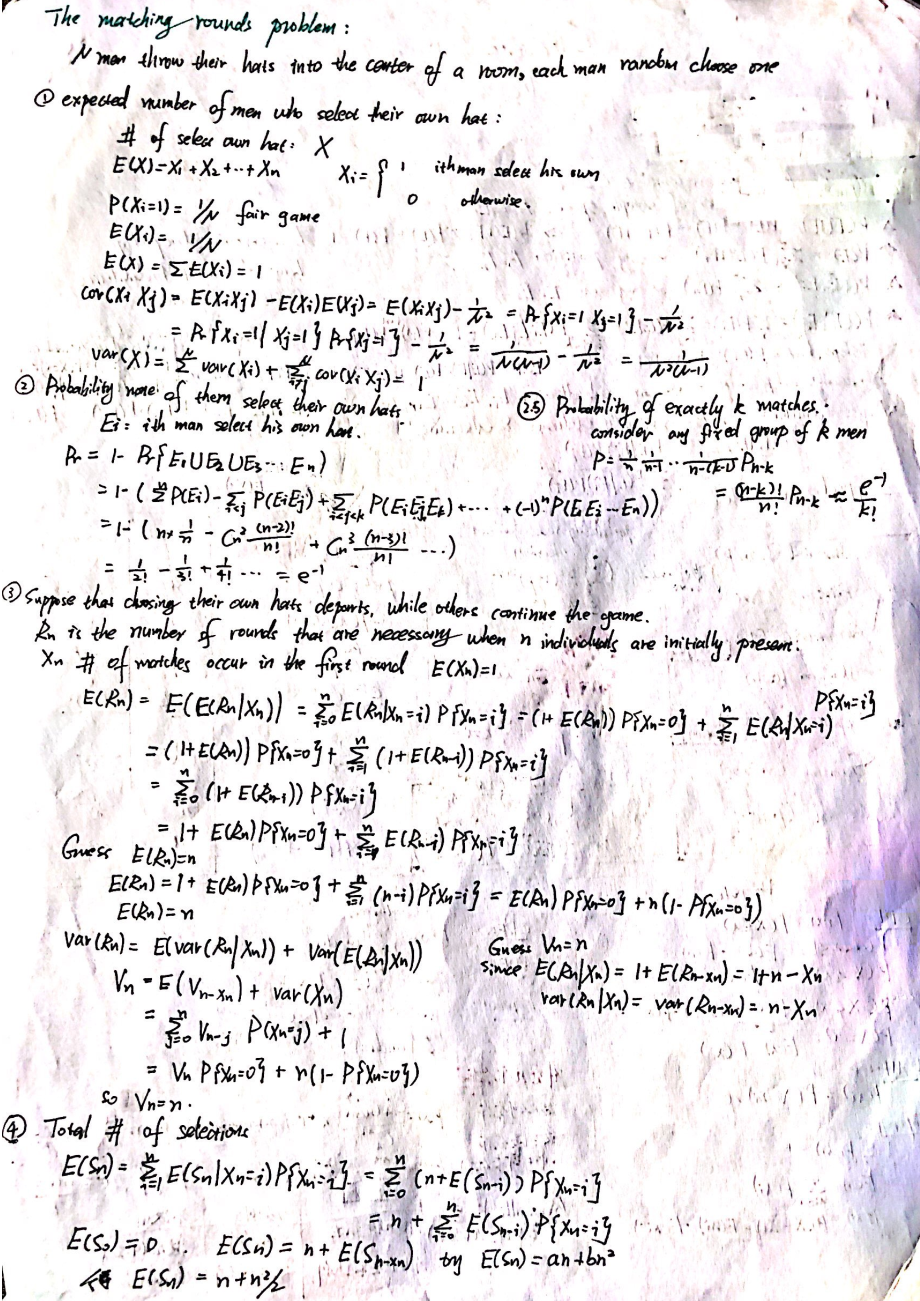 The matching rounds problem:
N men throw their hats into the center of a room, each man random choose one
① expected number of men who select their own hat:
# of select own hat: X
E(X)=X₁+X₂+...+Xn   Xi = { 1 ith man select his own
0 otherwise.
P(Xi=1) = 1/N fair game
E(Xi) = 1/N
E(X) = ΣE(Xi) = 1
cov(Xi Xj) = E(XiXj) - E(Xi)E(Xj) = E(XiXj) - 1/N² = Pr{Xi=1 Xj=1} - 1/N²
= Pr{Xi=1| Xj=1} Pr{Xj=1} - 1/N² = 1/N(N-1) - 1/N² = 1/N²(N-1)
var(X) = Σ var(Xi) + Σ cov(Xi Xj) = 1
② Probability none of them select their own hats
Ei: ith man select his own hat.
Pr = 1- Pr{E₁∪E₂∪E₃...En}
= 1-(ΣP(Ei) - Σi<j P(EiEj) + Σi<j<k P(EiEjEk) + ... + (-1)ⁿP(E₁E₂...En))
= 1-(n×1/n - Cn² (n-2)!/n! + Cn³ (n-3)!/n! ...)
= 1/2! - 1/3! + 1/4! ... = e⁻¹
②.5 Probability of exactly k matches.
consider any fixed group of k men
P = 1/n 1/n-1 ... 1/n-(k-1) Pn-k
= (n-k)!/n! Pn-k ≈ e⁻¹/k!
③ Suppose that choosing their own hats departs, while others continue the game.
Rn is the number of rounds that are necessary when n individuals are initially present.
Xn # of matches occur in the first round E(Xn)=1
E(Rn) = E(E(Rn|Xn)) = Σi=0ⁿ E(Rn|Xn=i) P{Xn=i} = (1+E(Rn)) P{Xn=0} + Σi=1ⁿ E(Rn|Xn=i) P{Xn=i}
= (1+E(Rn)) P{Xn=0} + Σi=1ⁿ (1+E(Rn-i)) P{Xn=i}
= Σi=0ⁿ (1+E(Rn-i)) P{Xn=i}
= 1+ E(Rn)P{Xn=0} + Σi=1ⁿ E(Rn-i) P{Xn=i}
Guess E(Rn)=n
E(Rn) = 1+ E(Rn)P{Xn=0} + Σi=1ⁿ (n-i)P{Xn=i} = E(Rn) P{Xn=0} + n(1- P{Xn=0})
E(Rn)=n
var(Rn) = E(var(Rn|Xn)) + Var(E(Rn|Xn))
Guess Vn=n
Vn = E(Vn-Xn) + var(Xn)
since E(Rn|Xn) = 1+ E(Rn-xn) = 1+n-Xn
var(Rn|Xn) = var(Rn-xn) = n-Xn
= Σj=0ⁿ Vn-j P(Xn=j) + 1
= Vn P{Xn=0} + n(1- P{Xn=0})
so Vn=n.
④ Total # of selections
E(Sn) = Σi=1ⁿ E(Sn|Xn=i)P{Xn=i} = Σi=0ⁿ (n+E(Sn-i)) P{Xn=i}
= n + Σi=0ⁿ E(Sn-i) P{Xn=i}
E(S₀)=0 E(Sn) = n+ E(Sn-xn) try E(Sn)=an+bn²
E(Sn) = n+n²/2